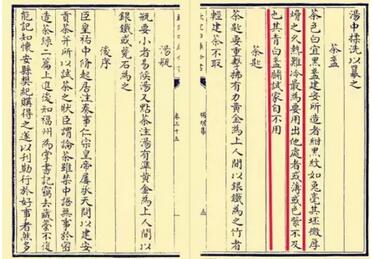 湯中揉洗以冪之
茶盞
茶色白宜黑盞建安所造者紺黑紋如兔毫其坯微厚
熁之久熱難冷最為要用出他處者或薄或色紫不及
也其青白盞鬬試家自不用
茶匙
茶匙要重擊拂有力黃金為上人間以銀鐵為之竹者
輕建茶不取
端明集
五
卷三十五
湯瓶
瓶要小者易候湯又點茶注湯有準黃金為上人間以
銀鐵或瓷石為之
後序
臣皇祐中修起居注奏事仁宗皇帝屢承天問以建安
貢茶并所以試茶之狀臣謂論茶雖禁中語無事於密
造茶錄二篇上進後知福州為掌書記竊去藏藁不復
能記知懷安縣樊紀購得之遂以刊勒行於好事者然多